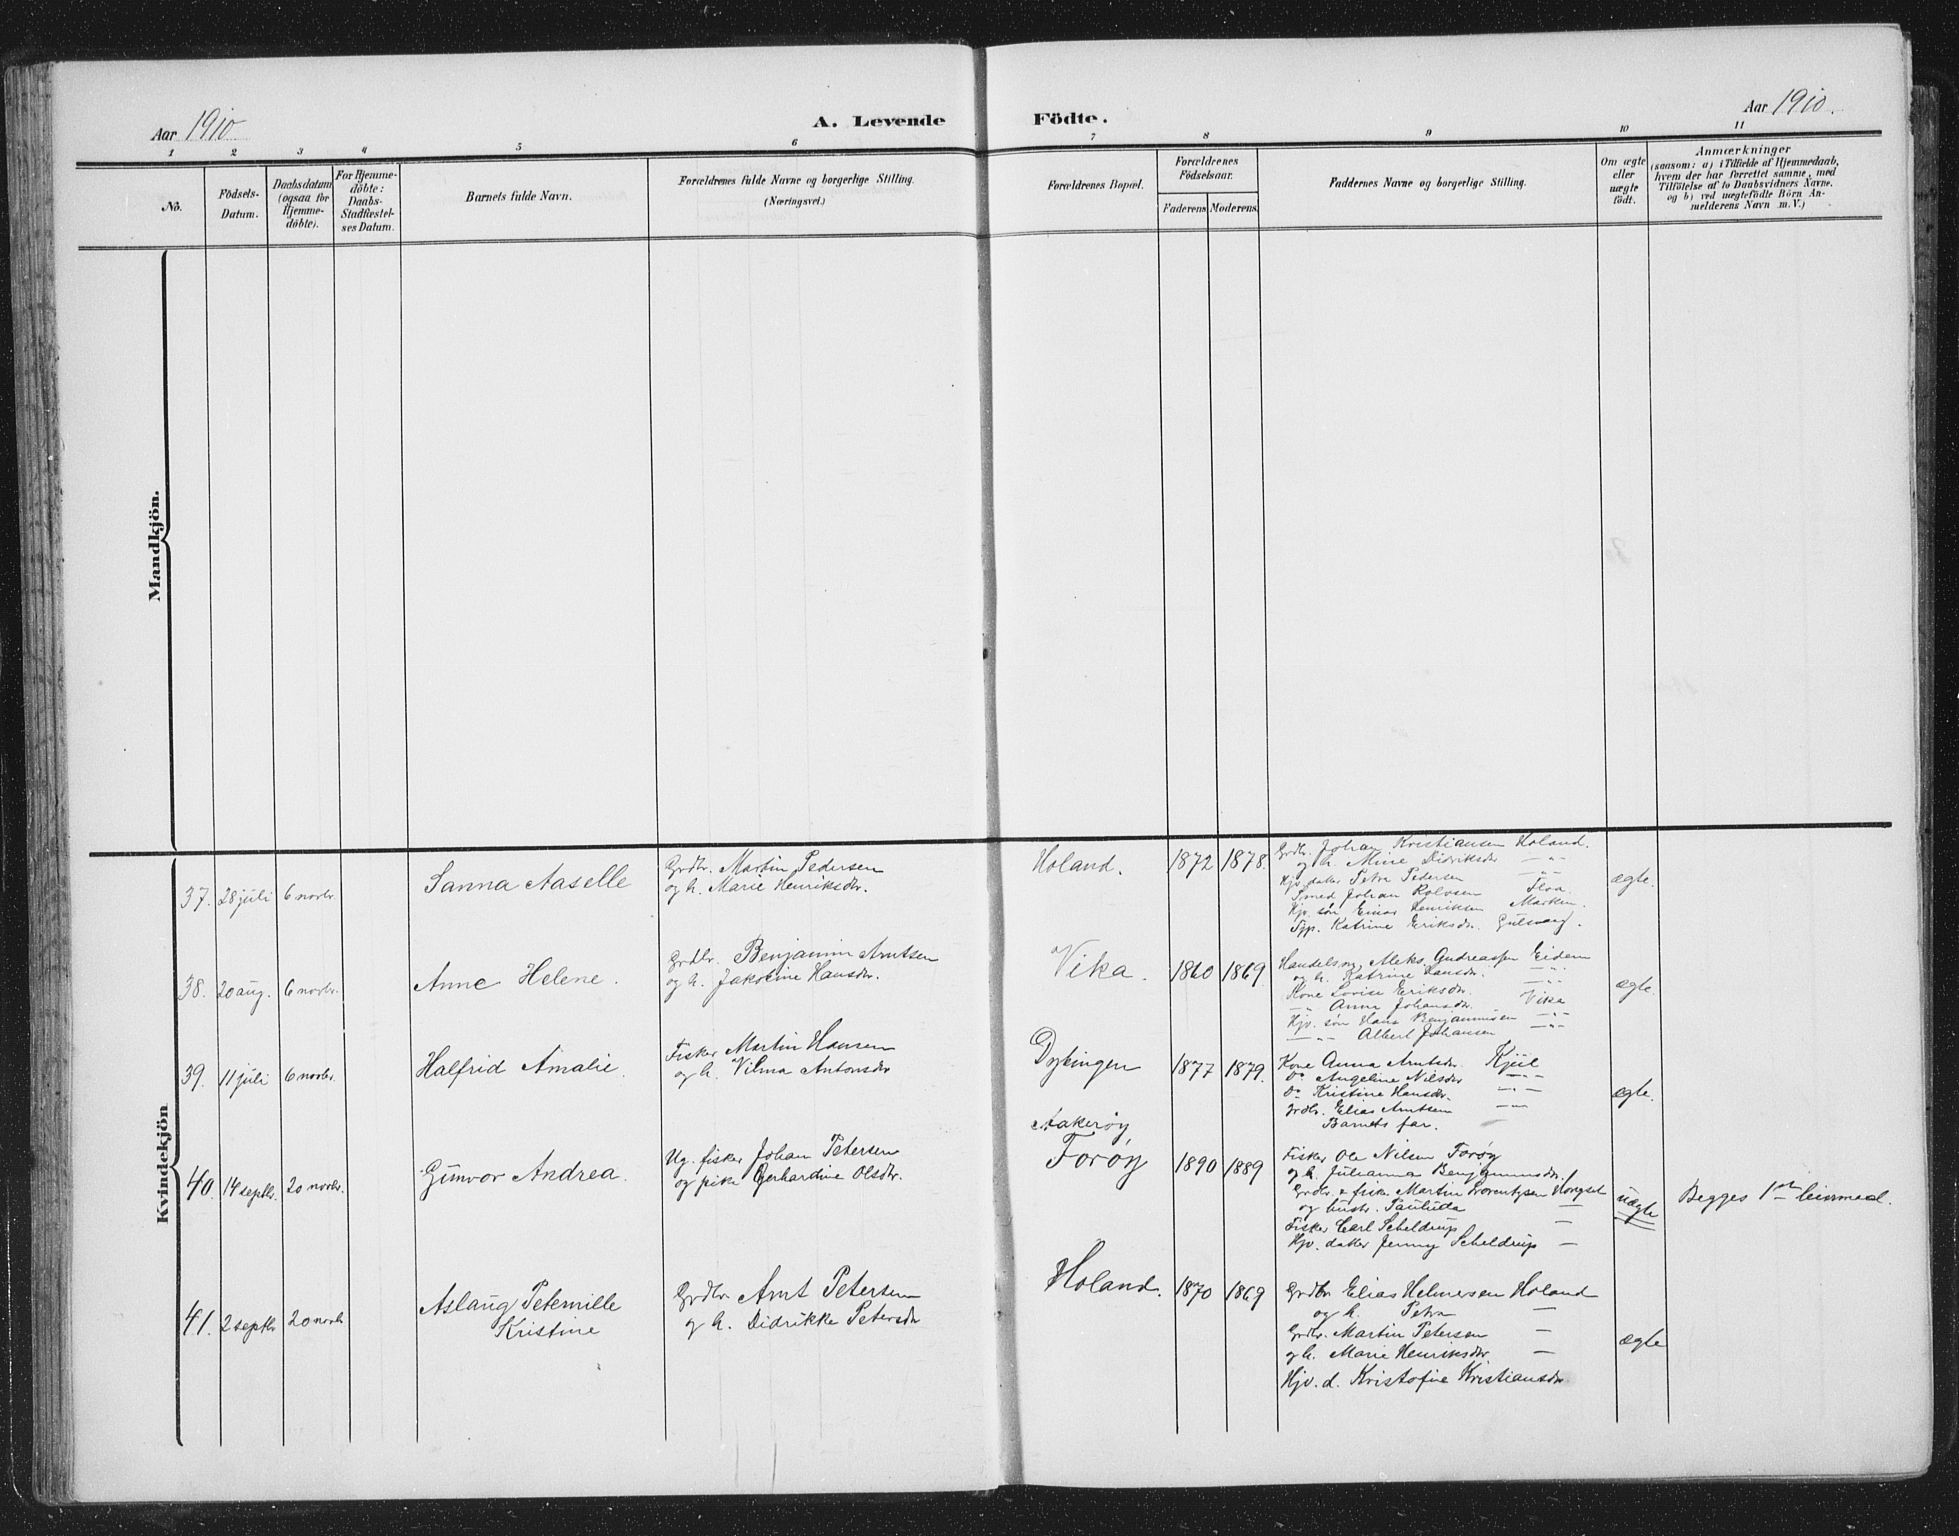 Aar 1910
A. Levende Födte.
Aar 1910.
1 2 3 4 5 6 7 8 9 10 11
No.
Födsels-
Datum.
Daabsdatum
(ogsaa for
Hjemme-
døbte).
For Hjemme-
døbte:
Daabs-
Stadfæstel-
ses Datum.
Barnets fulde Navn.
Forældrenes fulde Navne og borgerlige Stilling.
(Næringsvei.)
Forældrenes Bopæl.
Forældrenes
Födselsaar.
Faderens Moderens.
Faddernes Navne og borgerlige Stilling.
Om ægte
eller
uægte
født.
Anmærkninger
(saasom: a) i Tilfælde af Hjemmedaab,
hvem der har forrettet samme, med
Tilföielse af to Daabsvidners Navne.
og b) ved uægtefødte Börn An-
melderens Navn m. V.)
Mandkjön.
Kvindekjön
37. 28 juli 6 novbr.
Sanna Aaselle
Grdbr. Martin Pedersen
og h. Marie Henriksdr.
Holand. 1872 1878.
Grdbr. Johan Kristiansen Holand.
og h. Mine Didriksdr -"-
Hjv. dater Petra Pedersen -"-
Smed Johan Rolvsen Floa.
Hjv. søn Einar Henriksen Marken.
Katrine Eriksdr.
ægte.
38. 20 aug. 6 novbr.
Anne Helene.
Grdbr. Benjamin Arntsen
og h. Jakobine Hansdr.
Vika. 1860 1869
Handelsm. Meks. Andreassen Eidem
og h. Katrine Hansdr. -"-
Kone Lovise Eriksdr.
-"- Anna Johansdr. Vika
Hjv. søn Hans Benjaminsen -"-
-"- Albert Johansen -"-
ægte.
39. 11 juli 6 novbr.
Halfrid Amalie.
Fisker Martin Hansen
og h. Vilma Antonsdr
Dybingen 1877 1879.
Kone Anna Arntsdr. Kjül
Do Angeline Nilsdr -"-
Do Kristine Hansdr. -"-
Grdbr. Elias Arntsen -"-
Barnets far.
ægte.
40. 14 septbr. 20 novbr.
Gunvor Andrea.
Ug. fisker Johan Petersen
og pike Gerhardine Olsdtr.
Aakerøy
Forøy 1890 1889
Fisker Ole Nilsen Forøy
og h. Julianna Benjaminsdr.
Grdbr. & fisker Martin Lorentzen Hongset
og hustr. Paulida —
Fisker Carl Scheldrup —
Hjv. dater Jenny Scheldrup —
uægte
Begges 1ste leiermaal.
41. 2 septbr 20 novbr
Aslaug Petemille
Kristine
Grdbr. Arnt Petersen
og h. Didrikke Petersdr
Holand. 1870 1869
Grdbr Elias Helmersen Holand
og h. Petra —
Grdbr. Martin Petersen —
og h. Marie Henriksdtr —
Hjv. d. Kristofine Kristiansdr
ægte